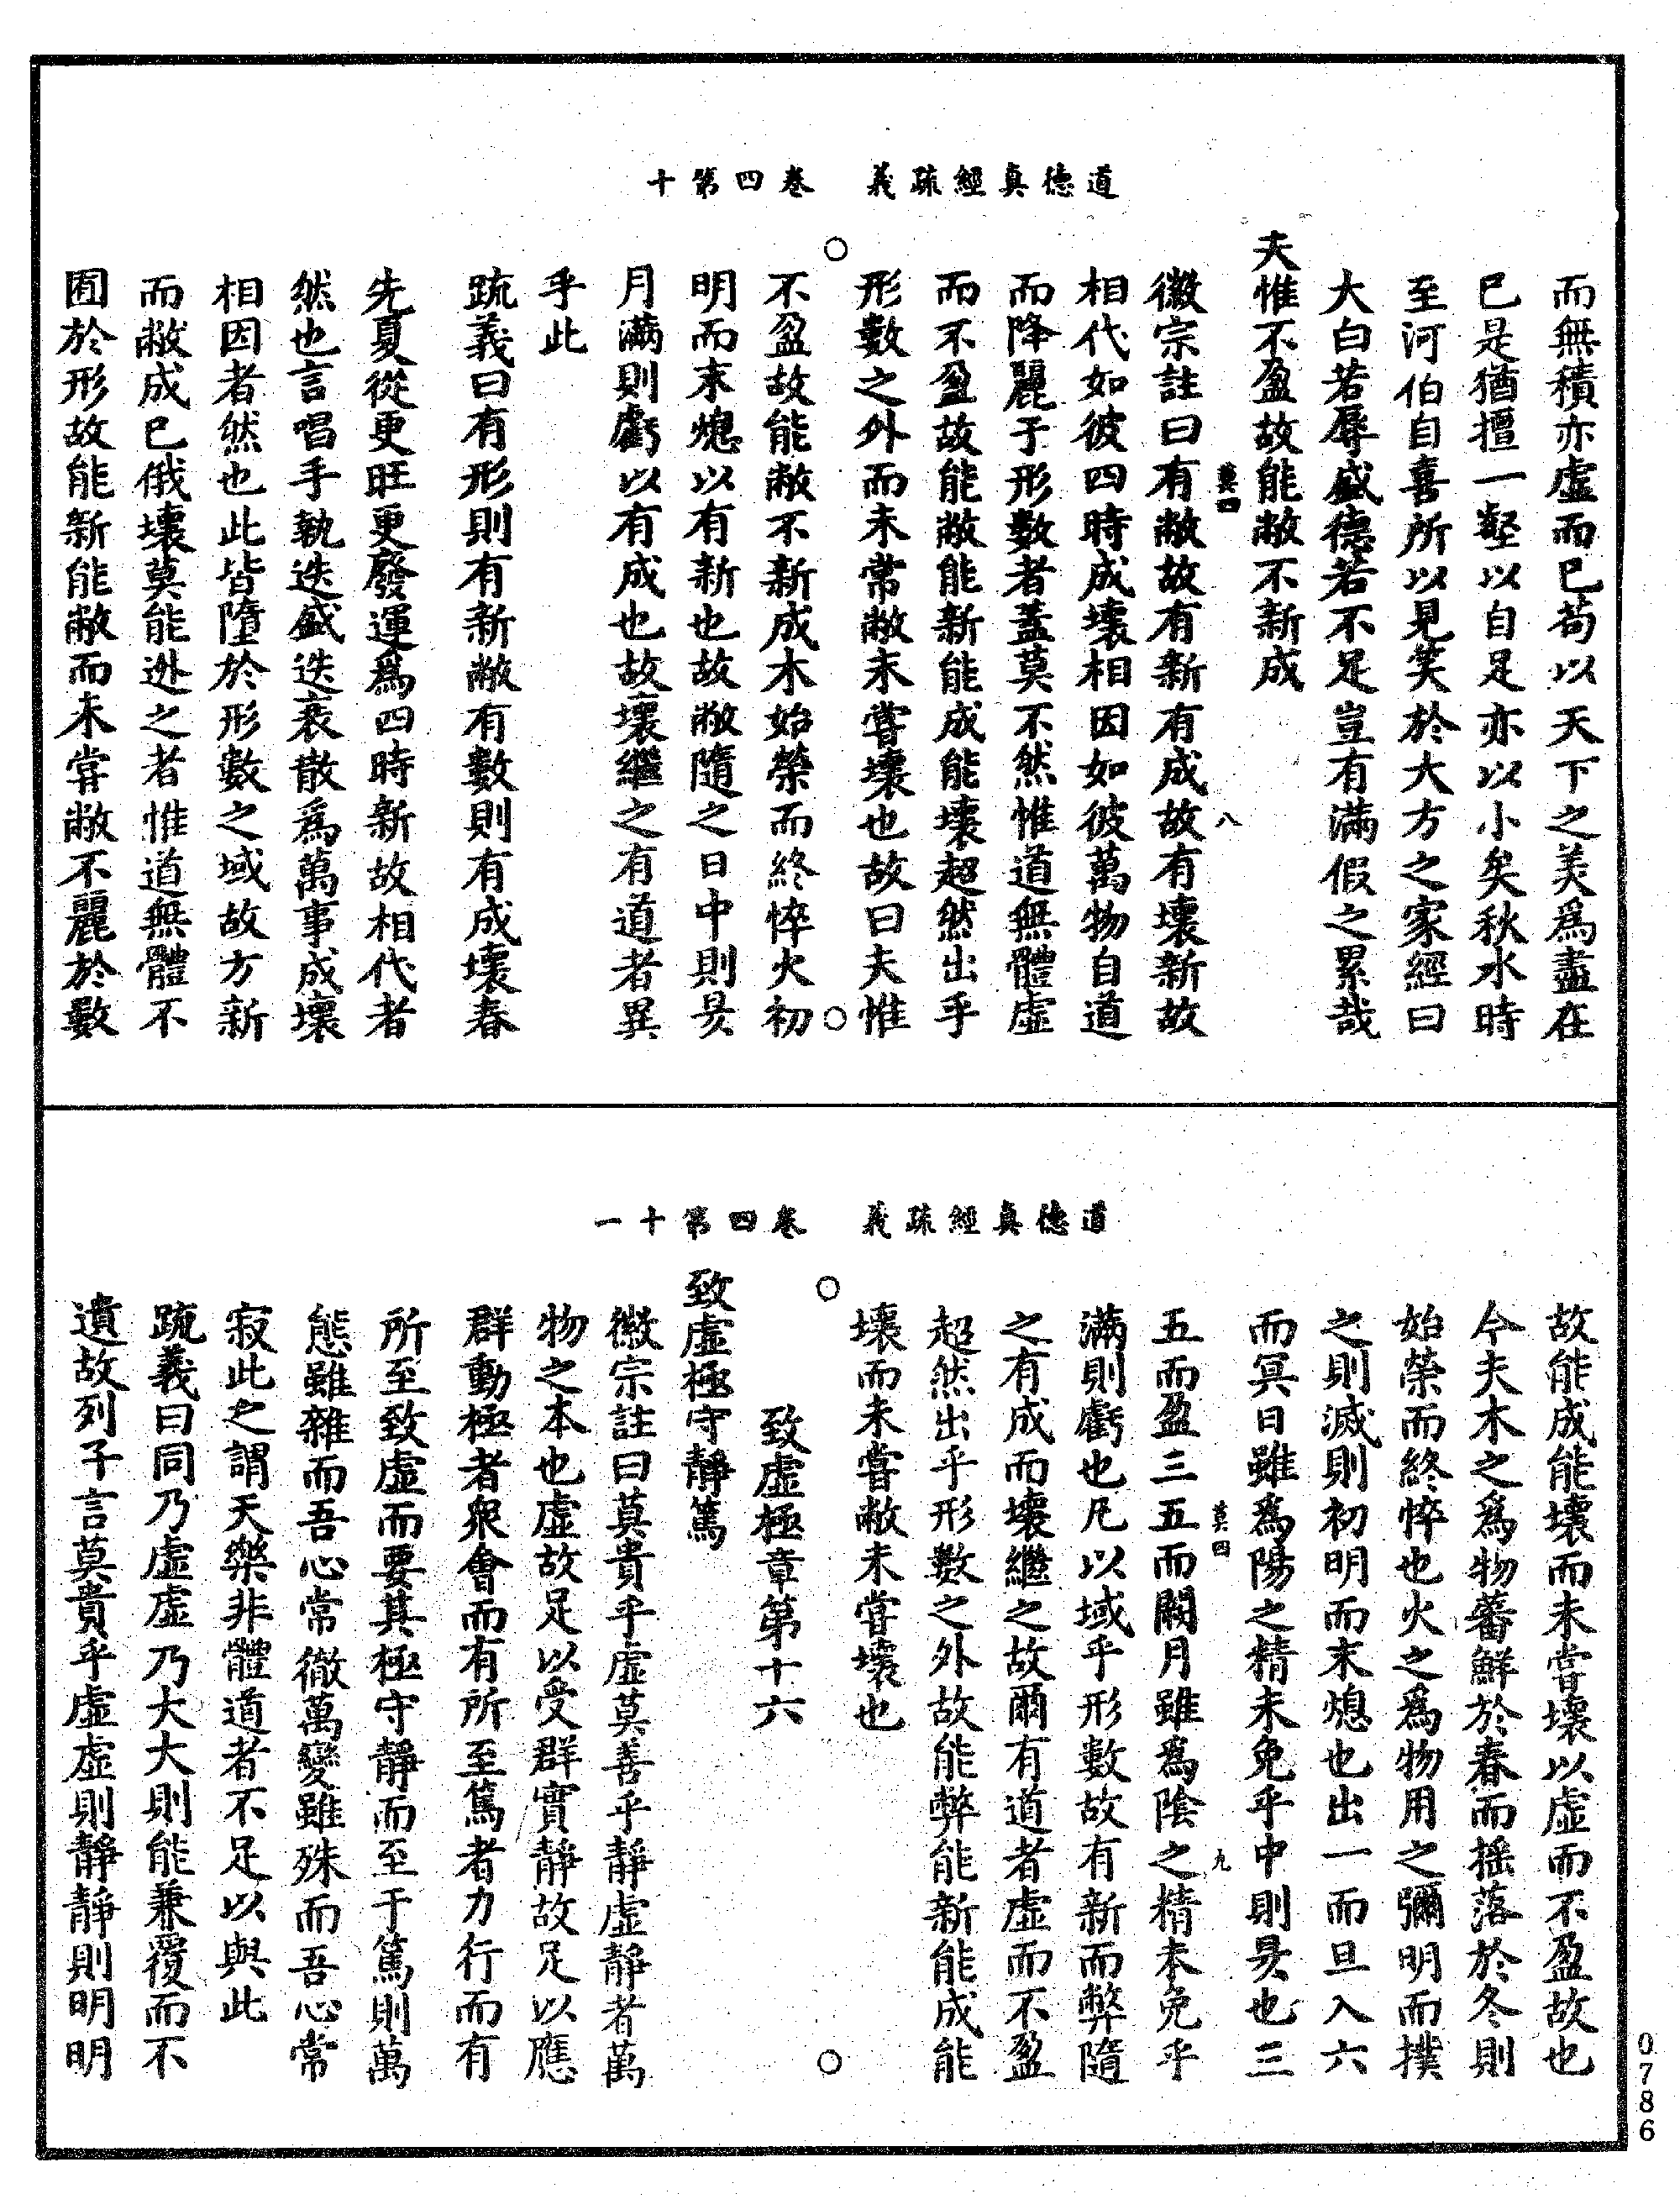 道德真經疏義　卷四第十
而無積亦虛而已苟以天下之美爲盡在
已是猶擅一壑以自足亦以小矣秋水時
至河伯自喜所以見笑於大方之家經曰
大白若辱盛德若不足豈有滿假之累哉
夫惟不盈故能敝不新成
莫四　八
徽宗註曰有敝故有新有成故有壞新故
相代如彼四時成壞相因如彼萬物自道
而降麗于形數者蓋莫不然惟道無體虛
而不盈故能敝能新能成能壞超然出乎
形數之外而未常敝未嘗壞也故曰夫惟
不盈故能敝不新成木始榮而終悴火初
明而末熄以有新也故敝隨之日中則昃
月滿則虧以有成也故壞繼之有道者異
乎此
疏義曰有形則有新敝有數則有成壞春
先夏從更旺更廢運爲四時新故相代者
然也言唱手執迭盛迭衰散爲萬事成壞
相因者然也此皆墮於形數之域故方新
而敝成已俄壞莫能逃之者惟道無體不
囿於形故能新能敝而未嘗敝不麗於數
道德真經疏義　卷四第十一
故能成能壞而未嘗壞以虛而不盈故也
今夫木之爲物蕃鮮於春而摇落於冬則
始榮而終悴也火之爲物用之彌明而撲
之則滅則初明而末熄也出一而旦入六
而冥日雖爲陽之精未免乎中則昃也三
莫四　九
五而盈三五而闕月雖爲陰之精未免乎
滿則虧也凡以域乎形數故有新而弊隨
之有成而壞繼之故爾有道者虛而不盈
超然出乎形數之外故能弊能新能成能
壞而未嘗敝未嘗壞也
致虛極章第十六
致虛極守靜篤
徽宗註曰莫貴乎虛莫善乎靜虛靜者萬
物之本也虛故足以受群實靜故足以應
群動極者衆會而有所至篤者力行而有
所至致虛而要其極守靜而至于篤則萬
態雖雜而吾心常徹萬變雖殊而吾心常
寂此之謂天樂非體道者不足以與此
疏義曰同乃虛虛乃大大則能兼覆而不
遺故列子言莫貴乎虛虛則靜靜則明明
0786